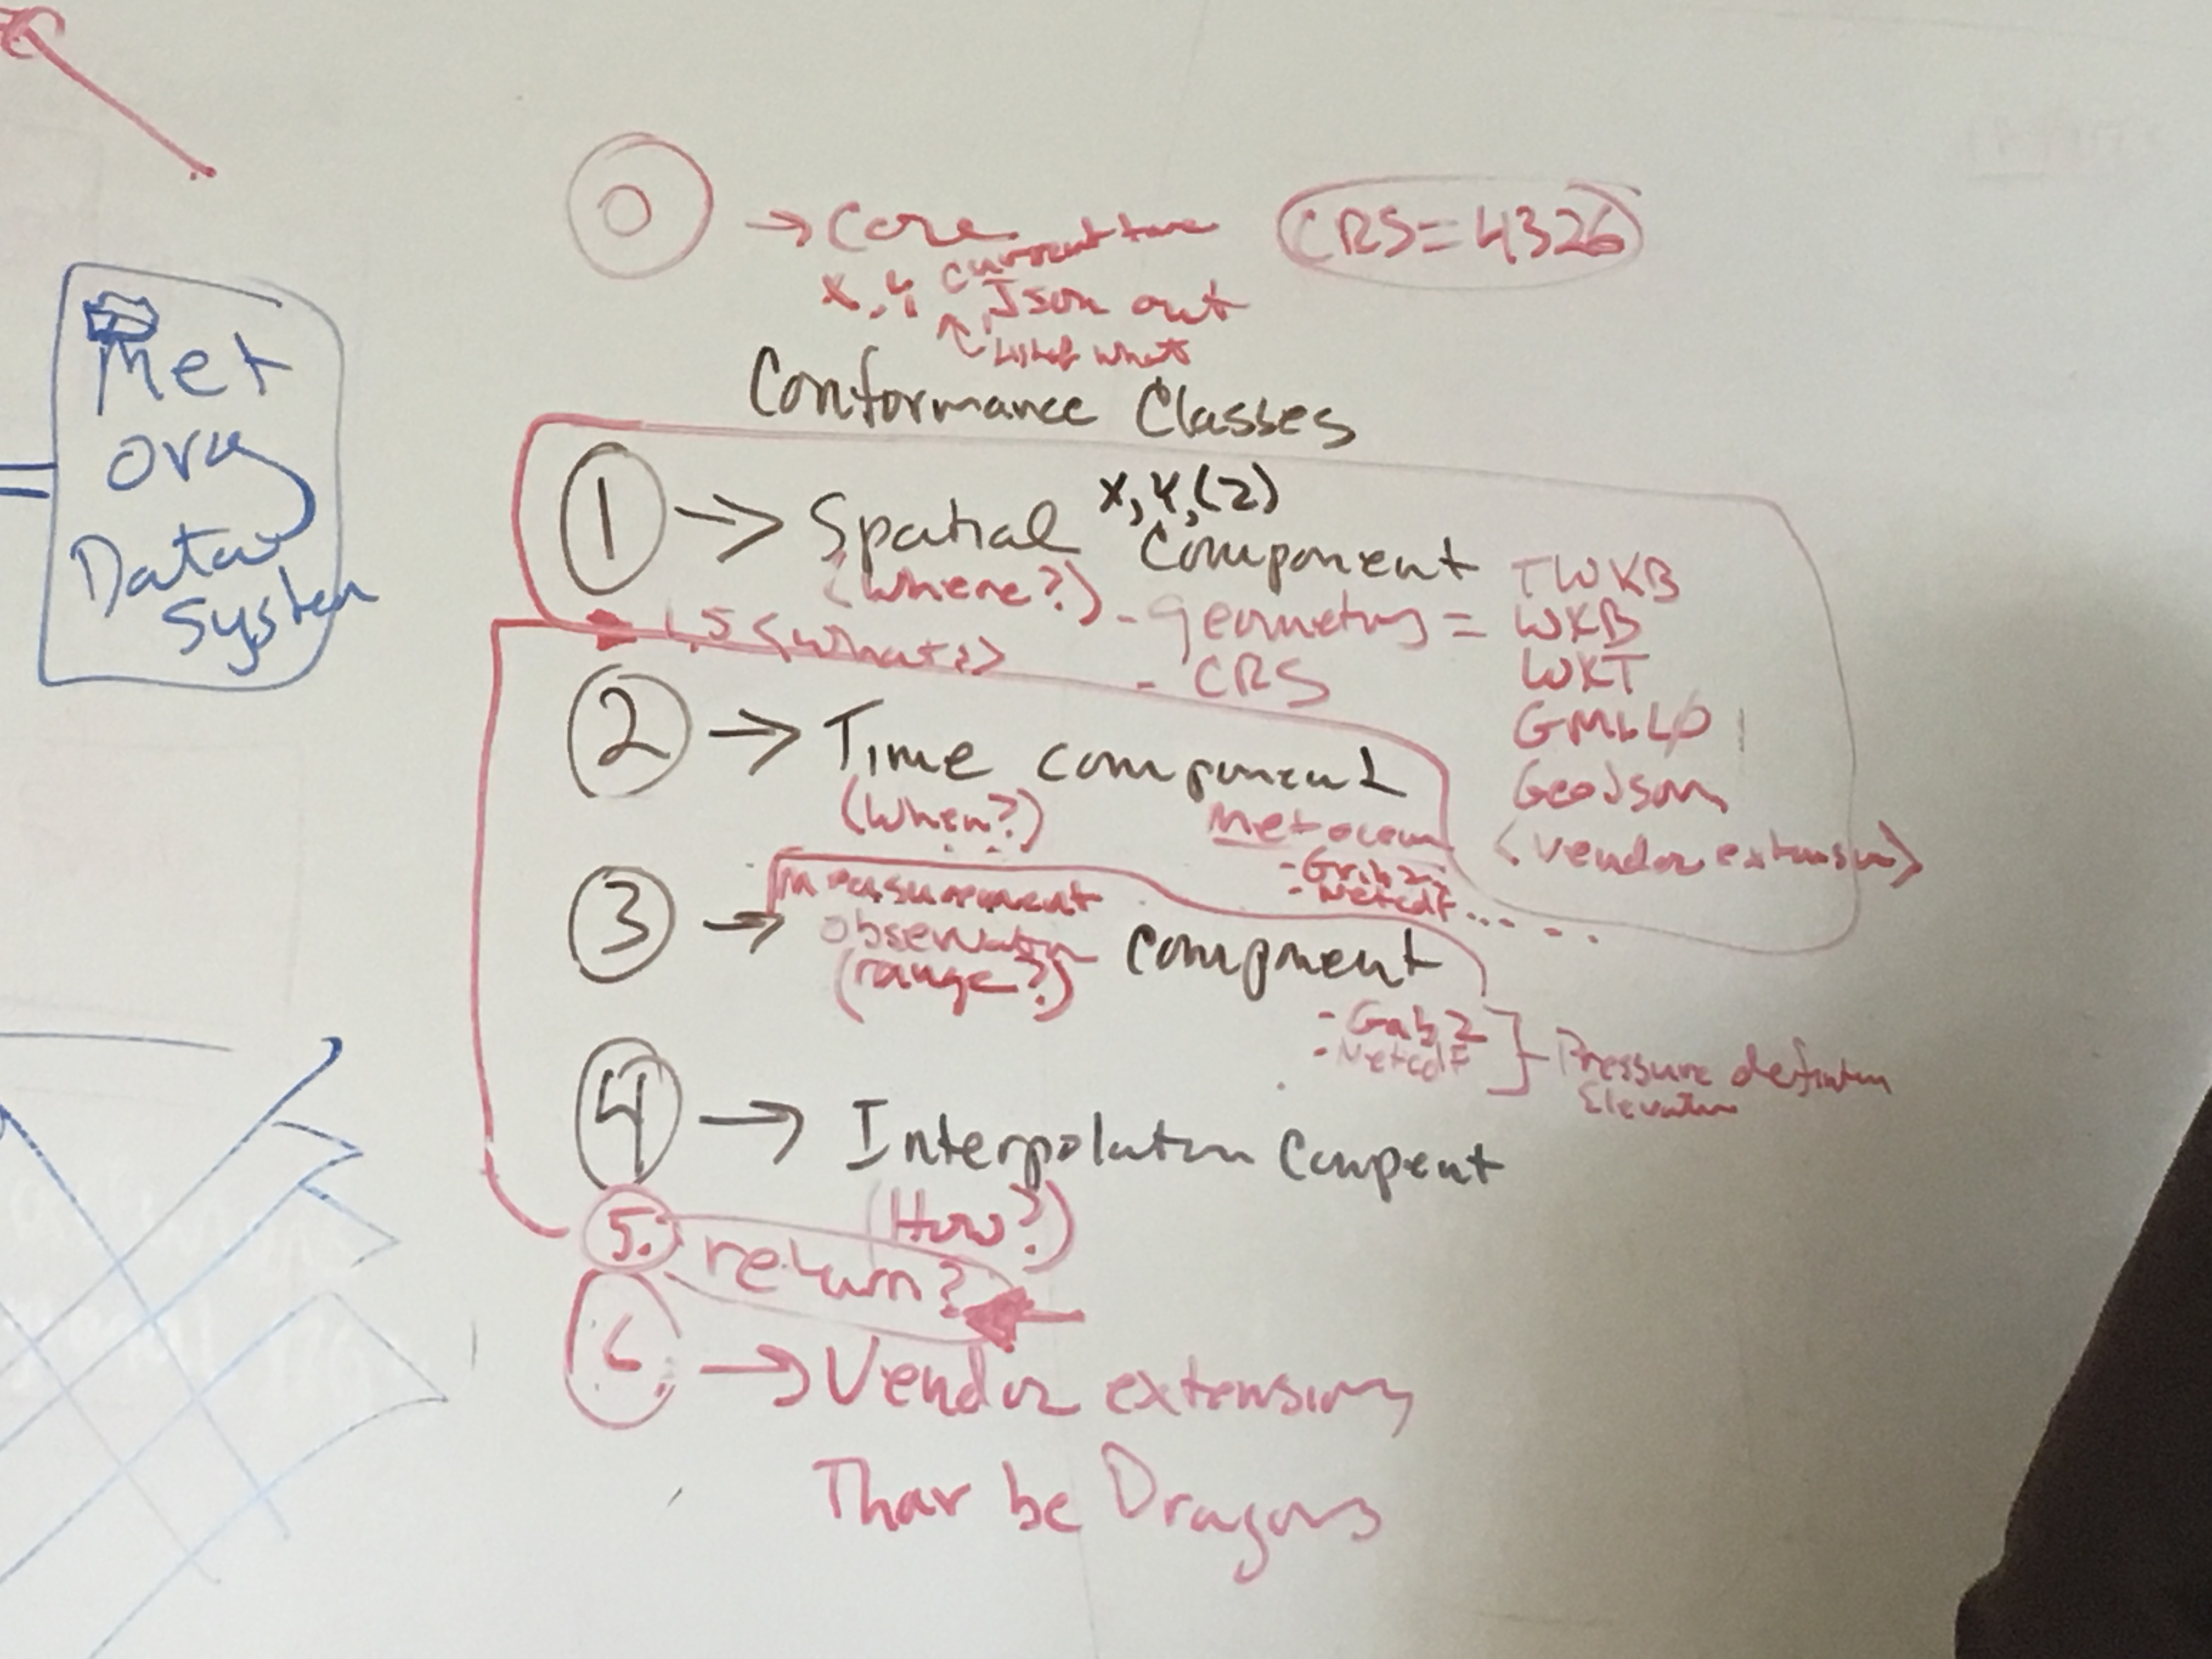 0 → Core CRS=4326
current time
x, y, Json out
list what
Conformance Classes
1 → Spatial x, y, (z) component
(where?)
1.5 <what?>
- geometry = TWKB
WKB
WKT
GeoJson
<vendor extension>
- CRS
2 → Time component
(when?)
Metocean
- Grib2
- Netcdf....
3 → measurement
observation component
(range?)
- Grib 2
- Netcdf
Pressure definition
Elevation
4 → Interpolation Compent
(How?)
5. return?
6. → Vendor extensions
Thar be Dragons
Met
org
Data
System